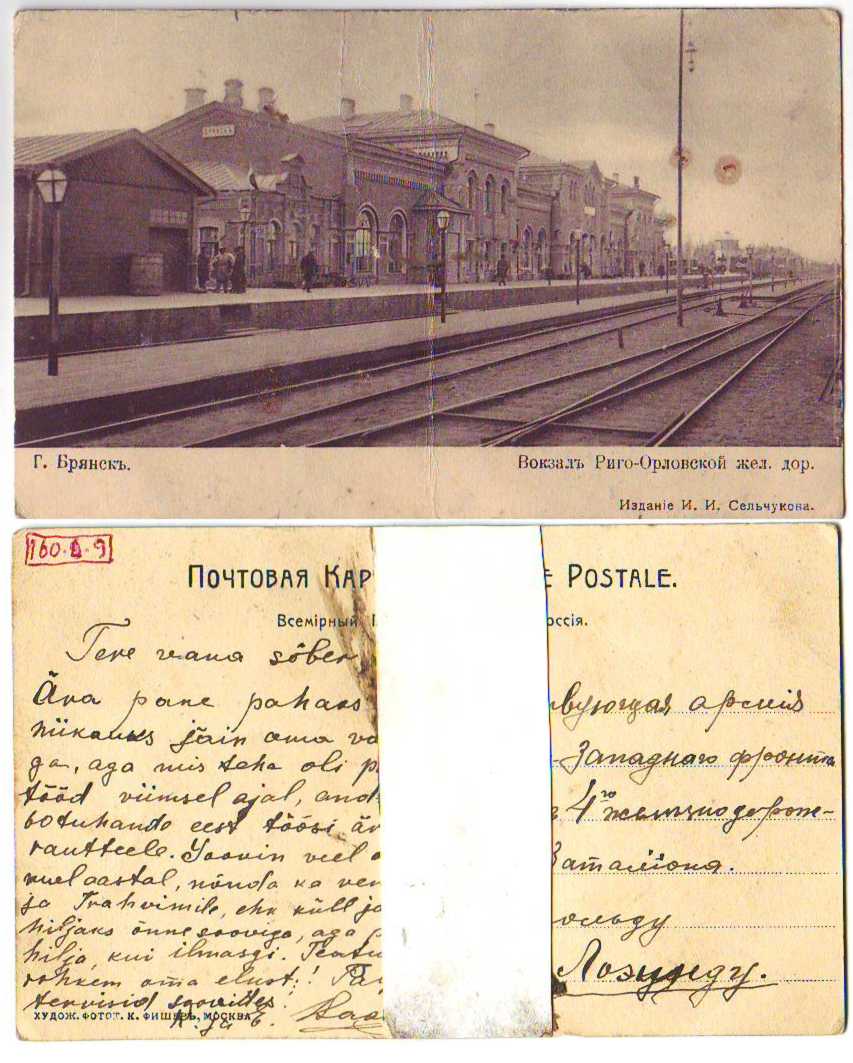 БРЯНСКЪ
Г. Брянскъ.
Вокзалъ Риго-Орловской жел. дор.
Изданіе И. И. Сельчукова.
160-Д-9
Почтовая Кар
E POSTALE.
Всемірный
оссія.
Tere vana sõber
Ära pane pahaks
niikauks jäin oma va
ga, aga mis teha oli p
tööd viimsel ajal, and
eest töösi är
rautteele. Soovin veel
uuel aastal, nõnda ka ven
ja Trahvimile, ehk küll ja
hiljaks õnne sooviga, aga p
hilja kui ilmasgi. Teatu
rohkem oma elust! Pa
tervisid soovides
вующая армія
-Западнаго фронта
4го желѣзнодорож-
баталіона.
ольду
Лозунду.
ХУДОЖ. ФОТОТ. К. ФИШЕРЪ, МОСКВА